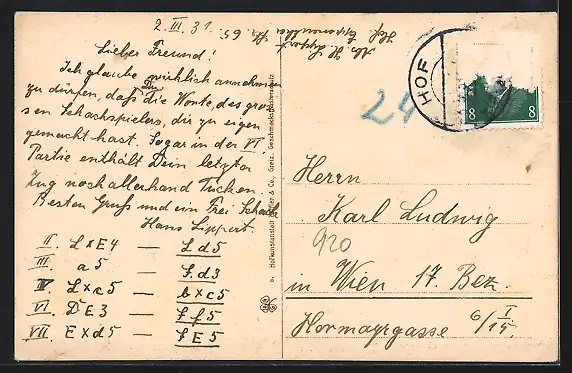 2. III. 31.
Lieber Freund!
Ich glaube wirklich annehmen
zu dürfen, daß Du die Worte des gros-
sen Schachspielers, dir zu eigen
gemacht hast. Sogar in der VI.
Partie enthält Dein letzter
Zug noch allerhand Tücken.
Besten Gruß und ein Frei Schach
Hans Lippert.
II. LxE4 — Ld5
III. a5 — Sd3
IV. Lxc5 — bxc5
VI. DE3 — Sf5
VII. Exd5 — SE5
Abs. H. Lippert
Hof
HOF
8 8
24
Herrn
Karl Ludwig
920
in Wien 17. Bez.
Hormayrgasse 6/I/15.